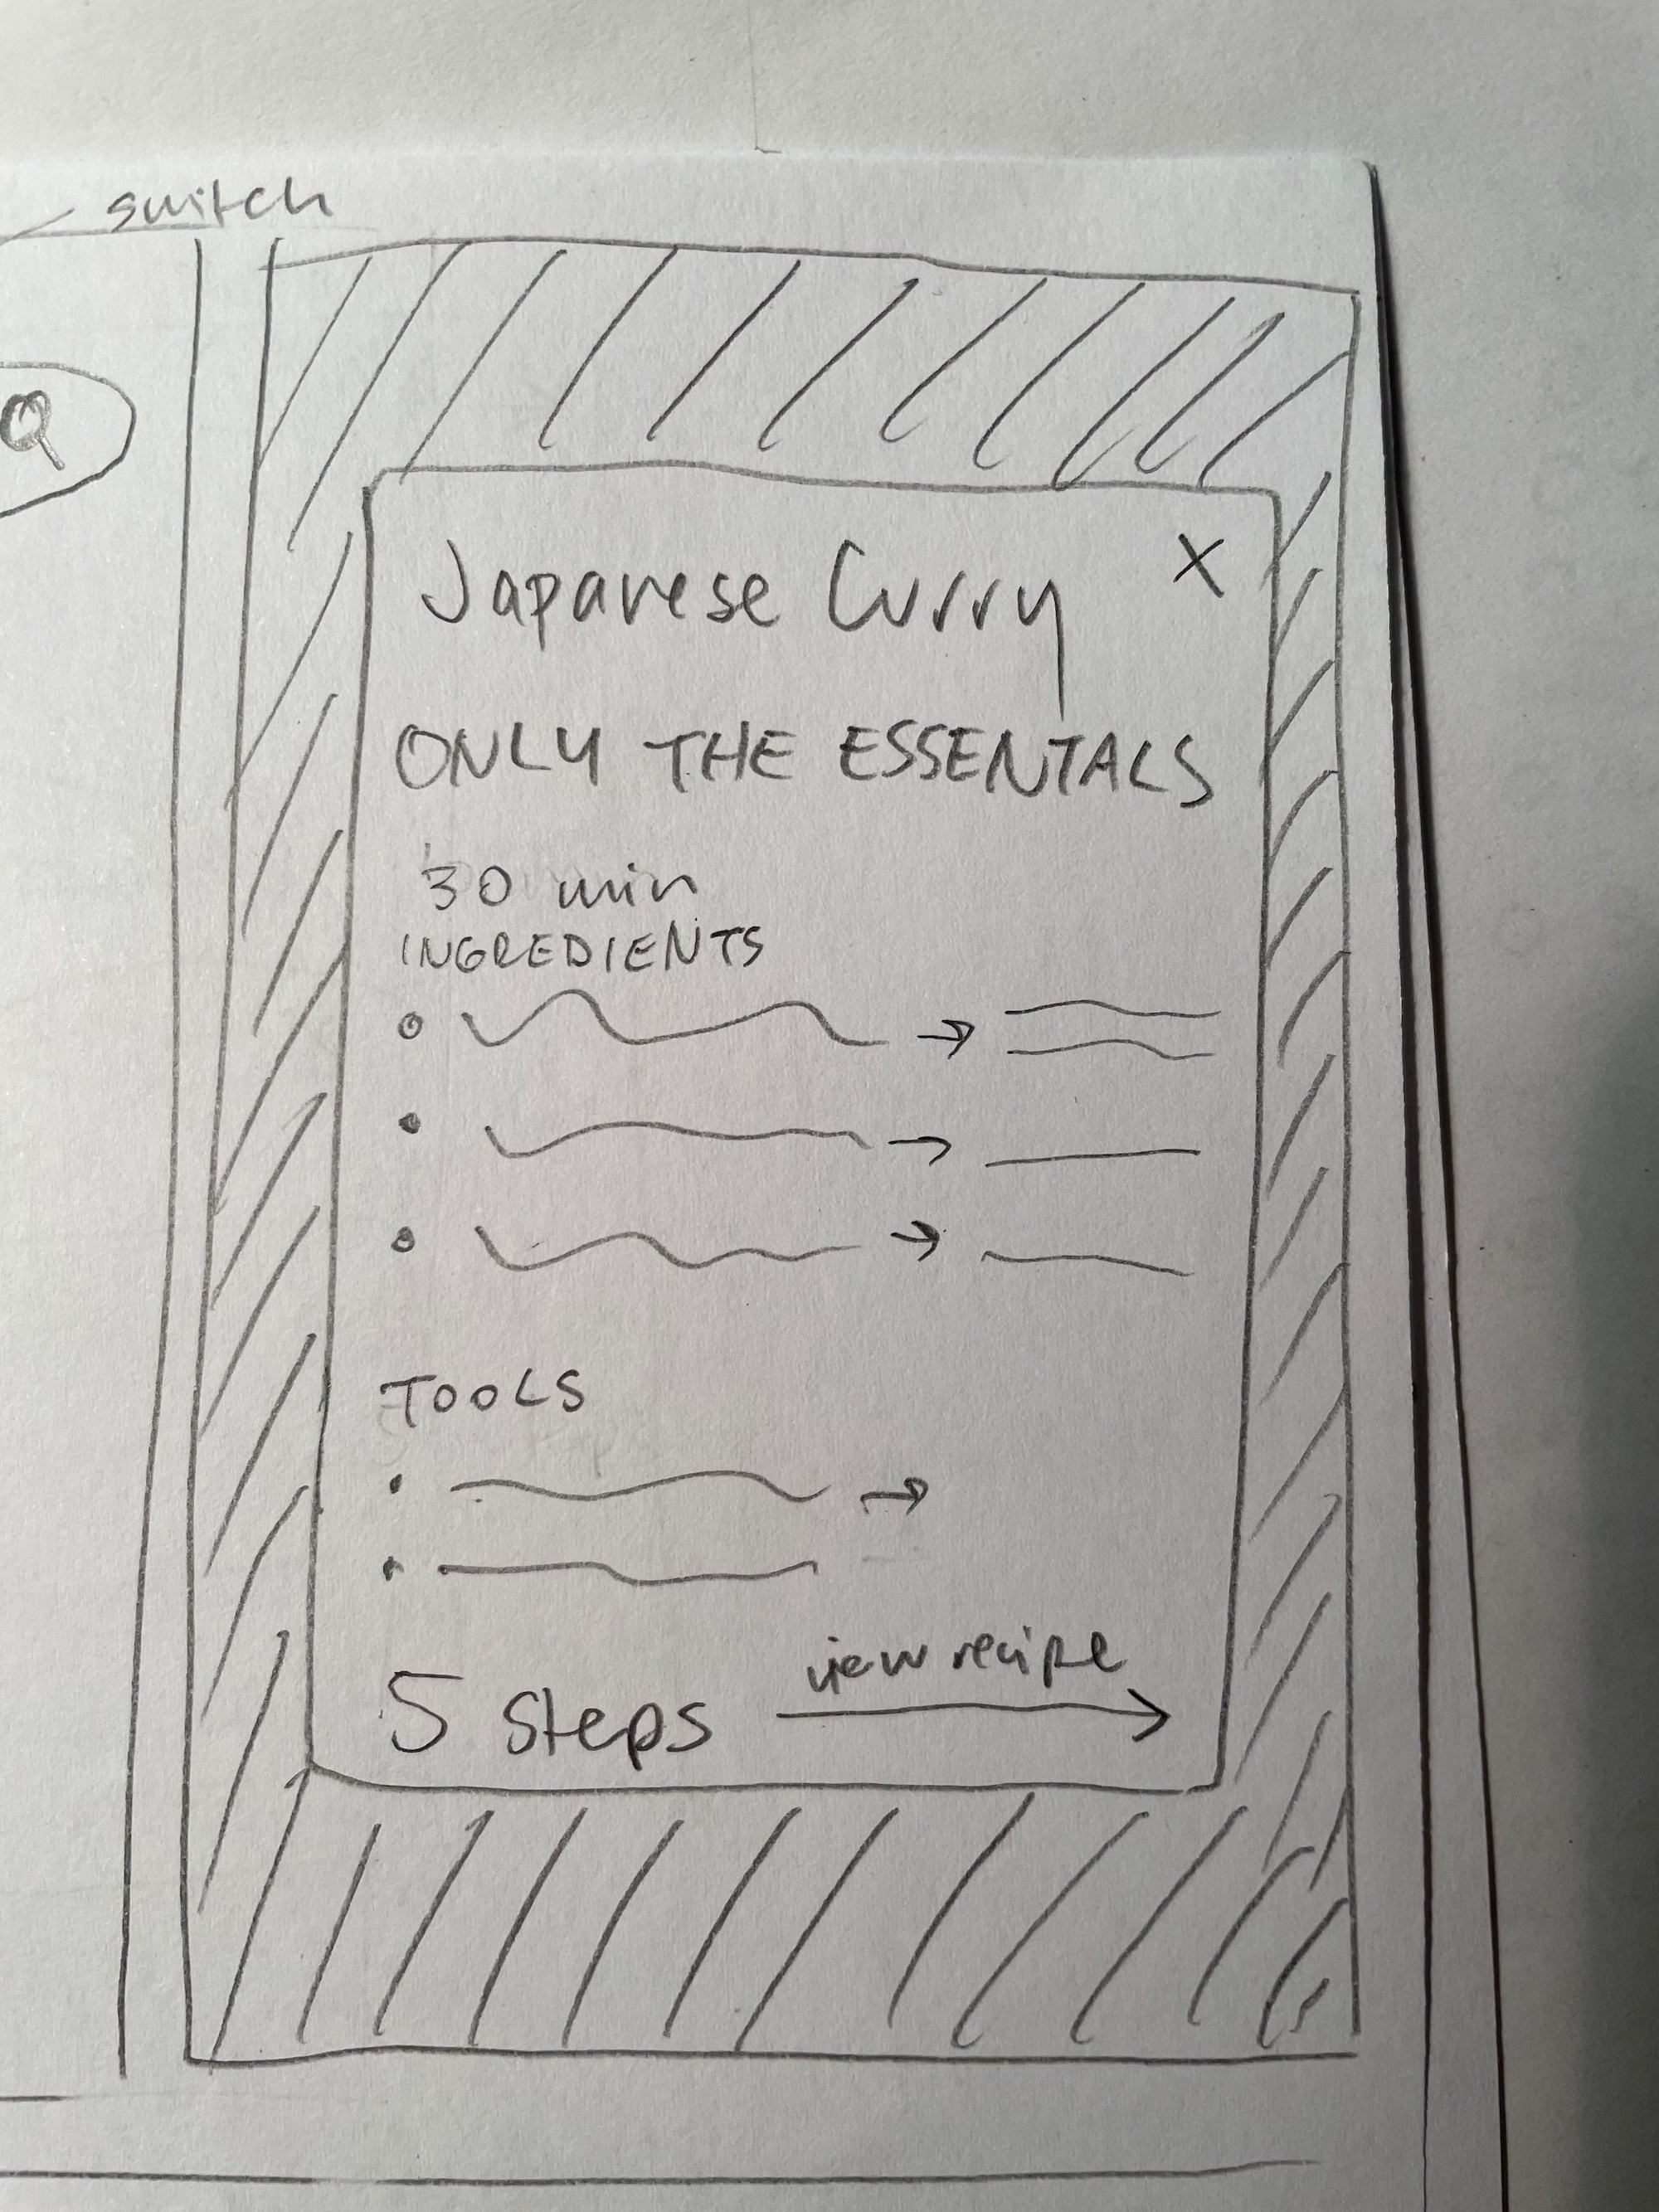 switch
Japanese Curry X
ONLY THE ESSENTALS
30 min
INGREDIENTS
TOOLS
view recipe
5 steps